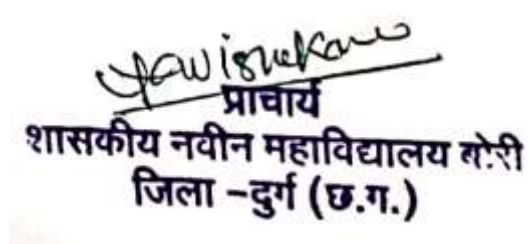 प्राचार्य
शासकीय नवीन महाविद्यालय बोरी
जिला –दुर्ग (छ.ग.)